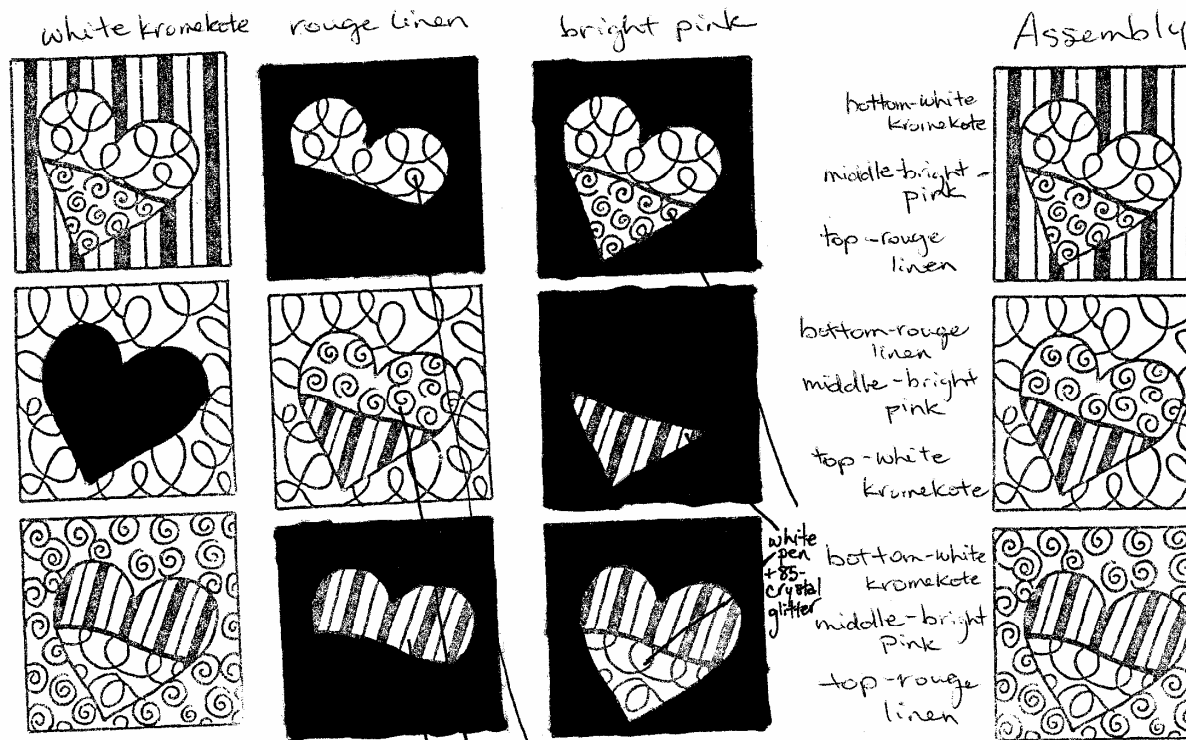 white kromekote
rouge linen
bright pink
Assembly
bottom-white
kromekote
middle-bright-
pink
top-rouge
linen
bottom-rouge
linen
middle-bright
pink
top-white
kromekote
white
pen
+85-
crystal
glitter
bottom-white
kromekote
middle-bright
pink
top-rouge
linen